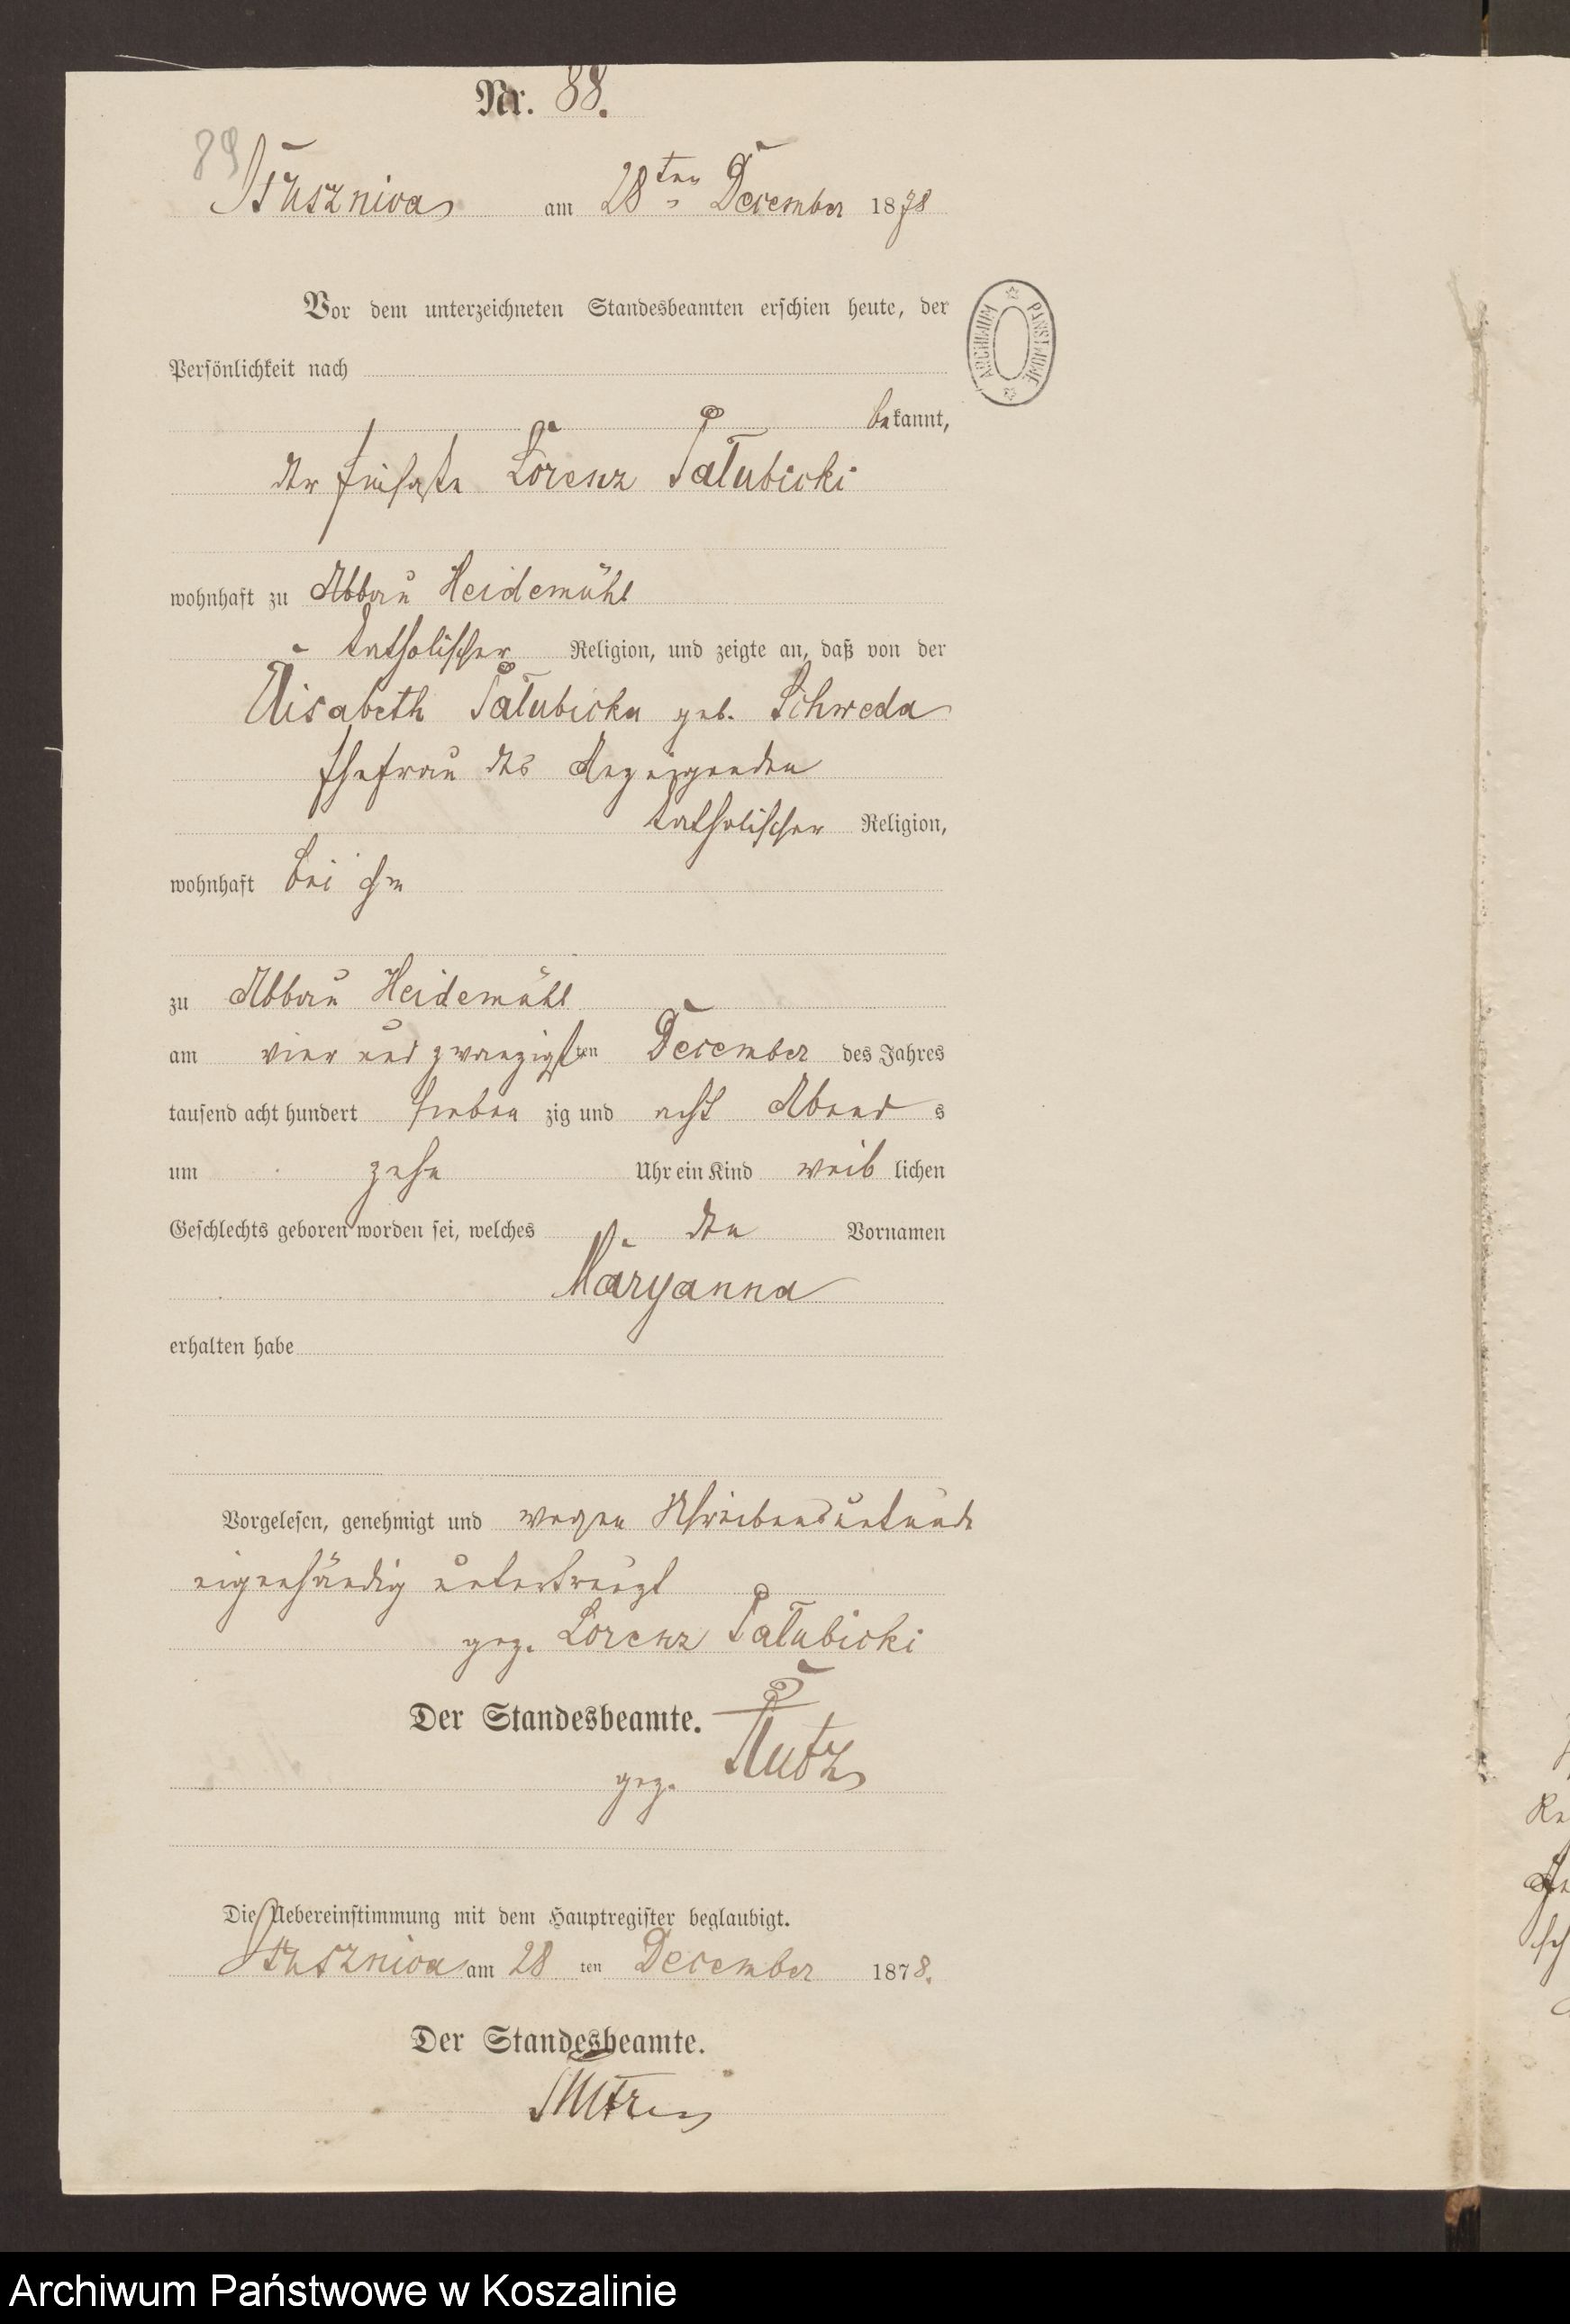 Nr. 88.
89
am 28ten December 1878
Vor dem unterzeichneten Standesbeamten erschien heute, der
Persönlichkeit nach
bekannt,
der Lorenz Pałubicki
wohnhaft zu Abbau Heidemühl
katholischer Religion, und zeigte an, daß von der
Elisabeth Pałubicka geb. Schweda
Ehefrau des Anzeigenden
katholischer Religion,
wohnhaft bei ihm
zu Abbau Heidemühl
am vier und zwanzigsten December des Jahres
tausend acht hundert sieben zig und acht Abend s
um zehn Uhr ein Kind weib lichen
Geschlechts geboren worden sei, welches den Vornamen
Maryanna
erhalten habe
Vorgelesen, genehmigt und wegen Schreibensunkunde
eigenhändig unterkreuzt
gez. Lorenz Pałubicki
Der Standesbeamte.
gez.
Die Uebereinstimmung mit dem Hauptregister beglaubigt.
am 28 ten December 1878.
Der Standesbeamte.
ARCHIWUM PAŃSTWOWE
Archiwum Państwowe w Koszalinie